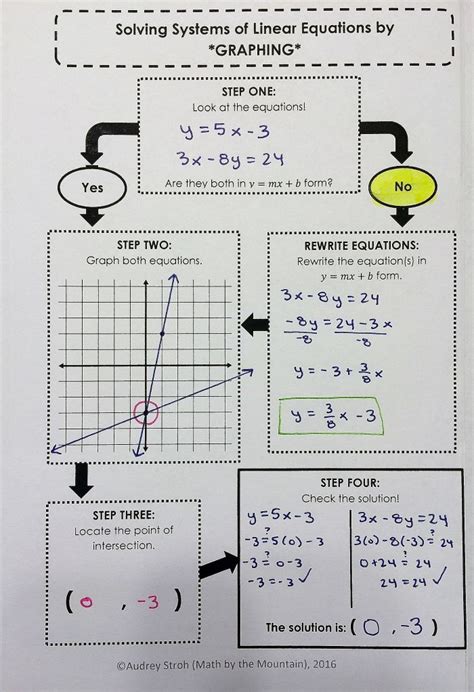 Solving Systems of Linear Equations by
*GRAPHING*
STEP ONE:
Look at the equations!
y = 5x - 3
3x - 8y = 24
Are they both in y = mx + b form?
Yes
No
STEP TWO:
Graph both equations.
REWRITE EQUATIONS:
Rewrite the equation(s) in
y = mx + b form.
3x - 8y = 24
-8y = 24 - 3x
-8 -8
y = -3 + 3/8 x
y = 3/8 x - 3
STEP THREE:
Locate the point of
intersection.
( 0 , -3 )
STEP FOUR:
Check the solution!
y = 5x - 3
-3 ?= 5(0) - 3
-3 ?= 0 - 3
-3 = -3 ✓
3x - 8y = 24
3(0) - 8(-3) ?= 24
0 + 24 ?= 24
24 = 24 ✓
The solution is: ( 0 , -3 )
©Audrey Stroh (Math by the Mountain), 2016